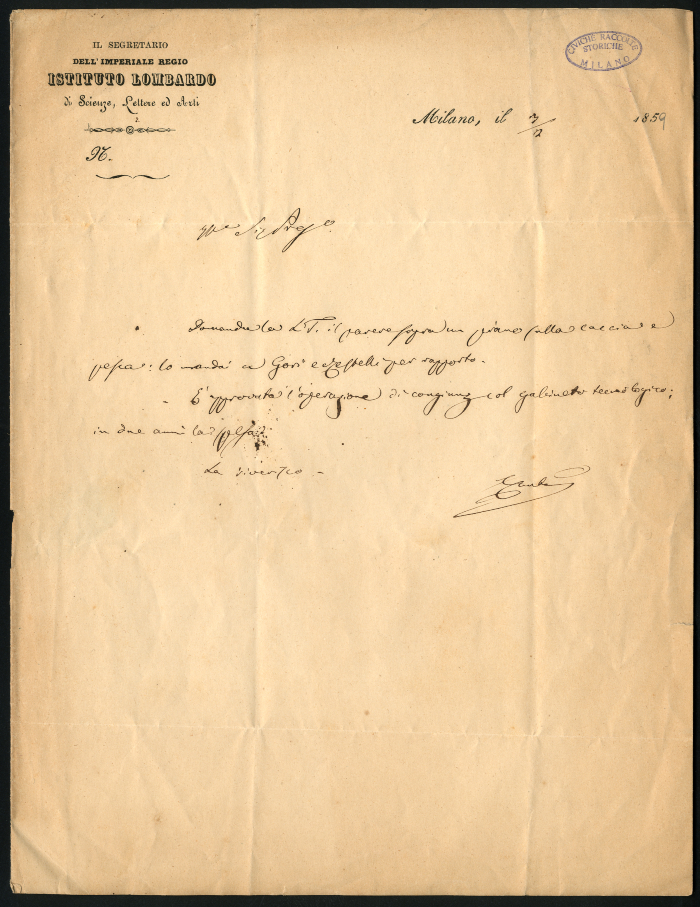 IL SEGRETARIO
DELL'IMPERIALE REGIO
ISTITUTO LOMBARDO
di Scienze, Lettere ed Arti
CIVICHE RACCOLTE
STORICHE
MILANO
Milano, il 3/12 1859
N.
Domanda la L.T. il parere sopra un piano sulla caccia e
pesca: lo mandai a Gori e per rapporto.
È approvata l'operazione di congiung col gabinetto tecnologico;
in due anni la spesa.
La riverisco